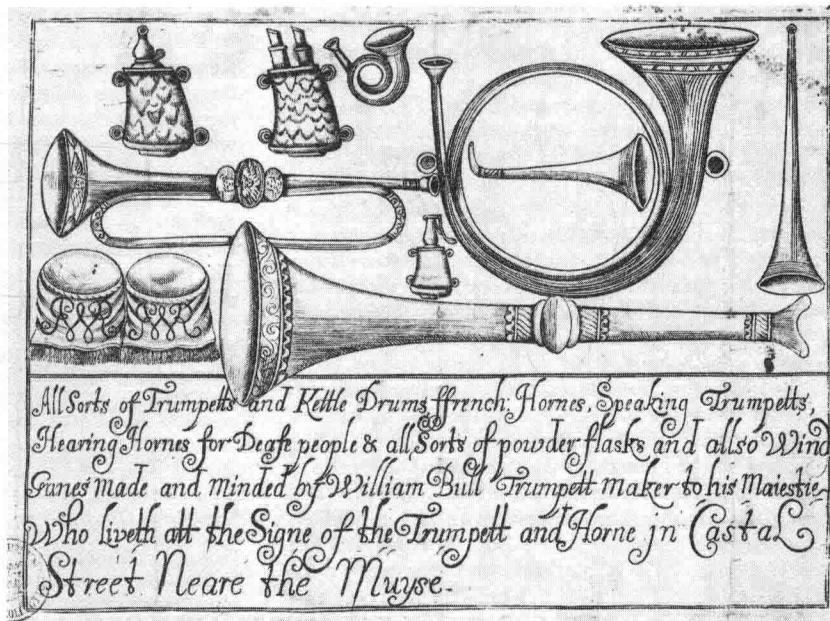 All Sorts of Trumpetts and Kettle Drums ffrench Hornes, Speaking Trumpetts,
Hearing Hornes for Deafe people & all Sorts of powder flasks and allso Wind
Gunes made and minded by William Bull Trumpett maker to his Maiestie
Who liveth att the Signe of the Trumpett and Horne in Castal
Street Neare the Muyse.